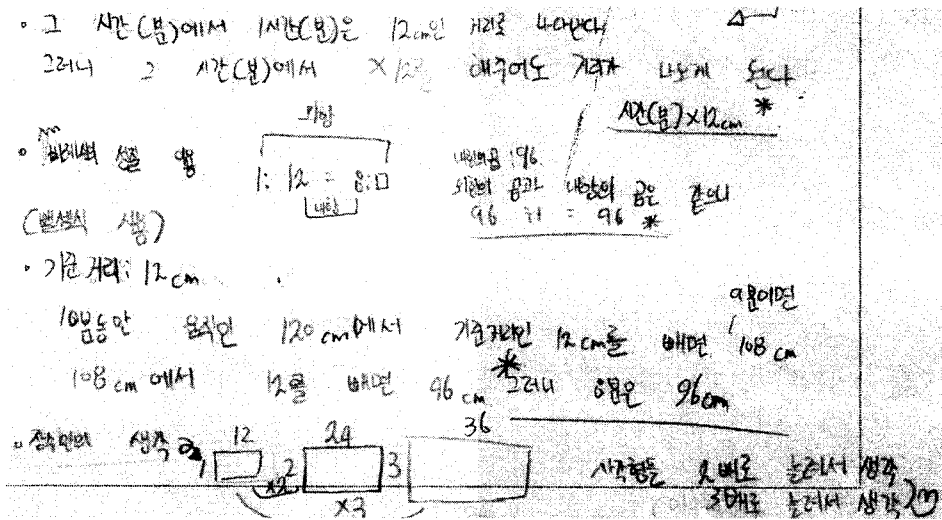 • 그 시간(분)에서 1시간(분)은 12cm인 거리로 나타난다
그러니 그 시간(분)에서 ×12를 해주어도 거리가 나오게 된다
시간(분)×12cm *
• 비례식 성질
외항
1 : 12 = 8 : □
내항
내항의 곱 : 96
외항의 곱과 내항의 곱은 같으니
96 = 96 *
(비례식 사용)
• 기준 거리: 12cm
10분동안 움직인 120cm에서 기준거리인 12cm를 빼면 108cm
9분이면
108cm에서 12를 빼면 96cm
* 그러니 8분은 96cm
• 생각
12 24 36
1 2 3
×2
×3
사각형을 2배로 늘려서 생각
3배로 늘려서 생각